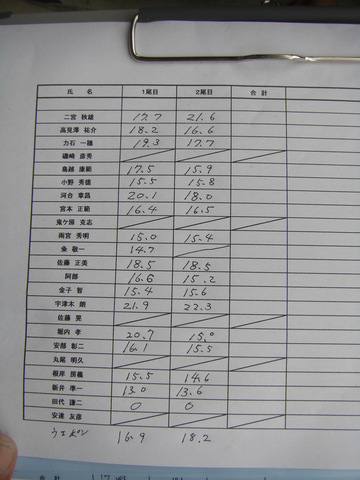 氏 名 1尾目 2尾目 合 計
二宮 秋雄 17.7 21.6
高見澤 祐介 18.2 16.6
力石 一穂 19.3 17.7
磯崎 彦秀
鳥越 康範 17.5 15.9
小野 秀徳 15.5 15.8
河合 章昌 20.1 18.0
宮本 正範 16.4 16.5
鬼ケ原 克志
雨宮 秀明 15.0 15.4
粂 敬一 14.7
佐藤 正美 18.5 18.5
阿部 16.6 15.2
金子 智 15.4 15.6
宇津木 朗 21.9 22.3
佐藤 晃
堀内 孝 20.7 15.0
安部 彰二 16.1 15.5
丸尾 明久
根岸 房義 15.5 14.6
新井 準一 13.0 13.6
田代 謙二 0 0
安達 友彦
16.9 18.2
合 計